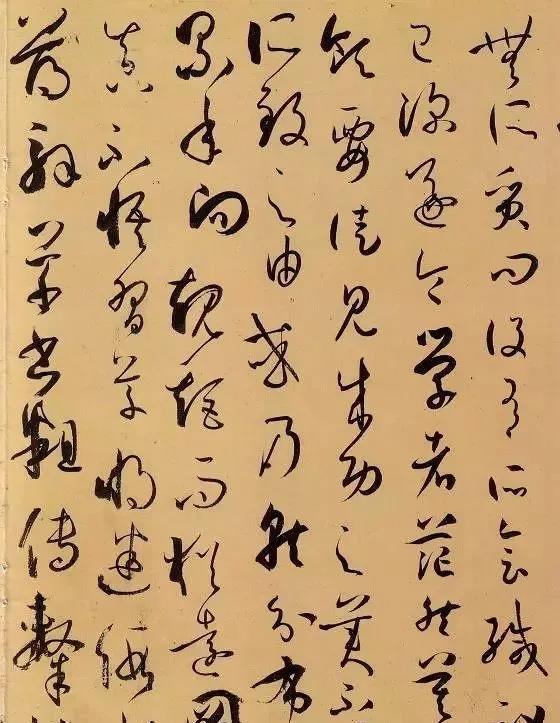 無所質問設有所會緘秘
已深遂令學者茫然莫知
領要徒見成功之美不悟
所致之由或乃就分布於
累年向規矩而猶遠圖
真不悟習草將迷假
薄解草書粗傳隸